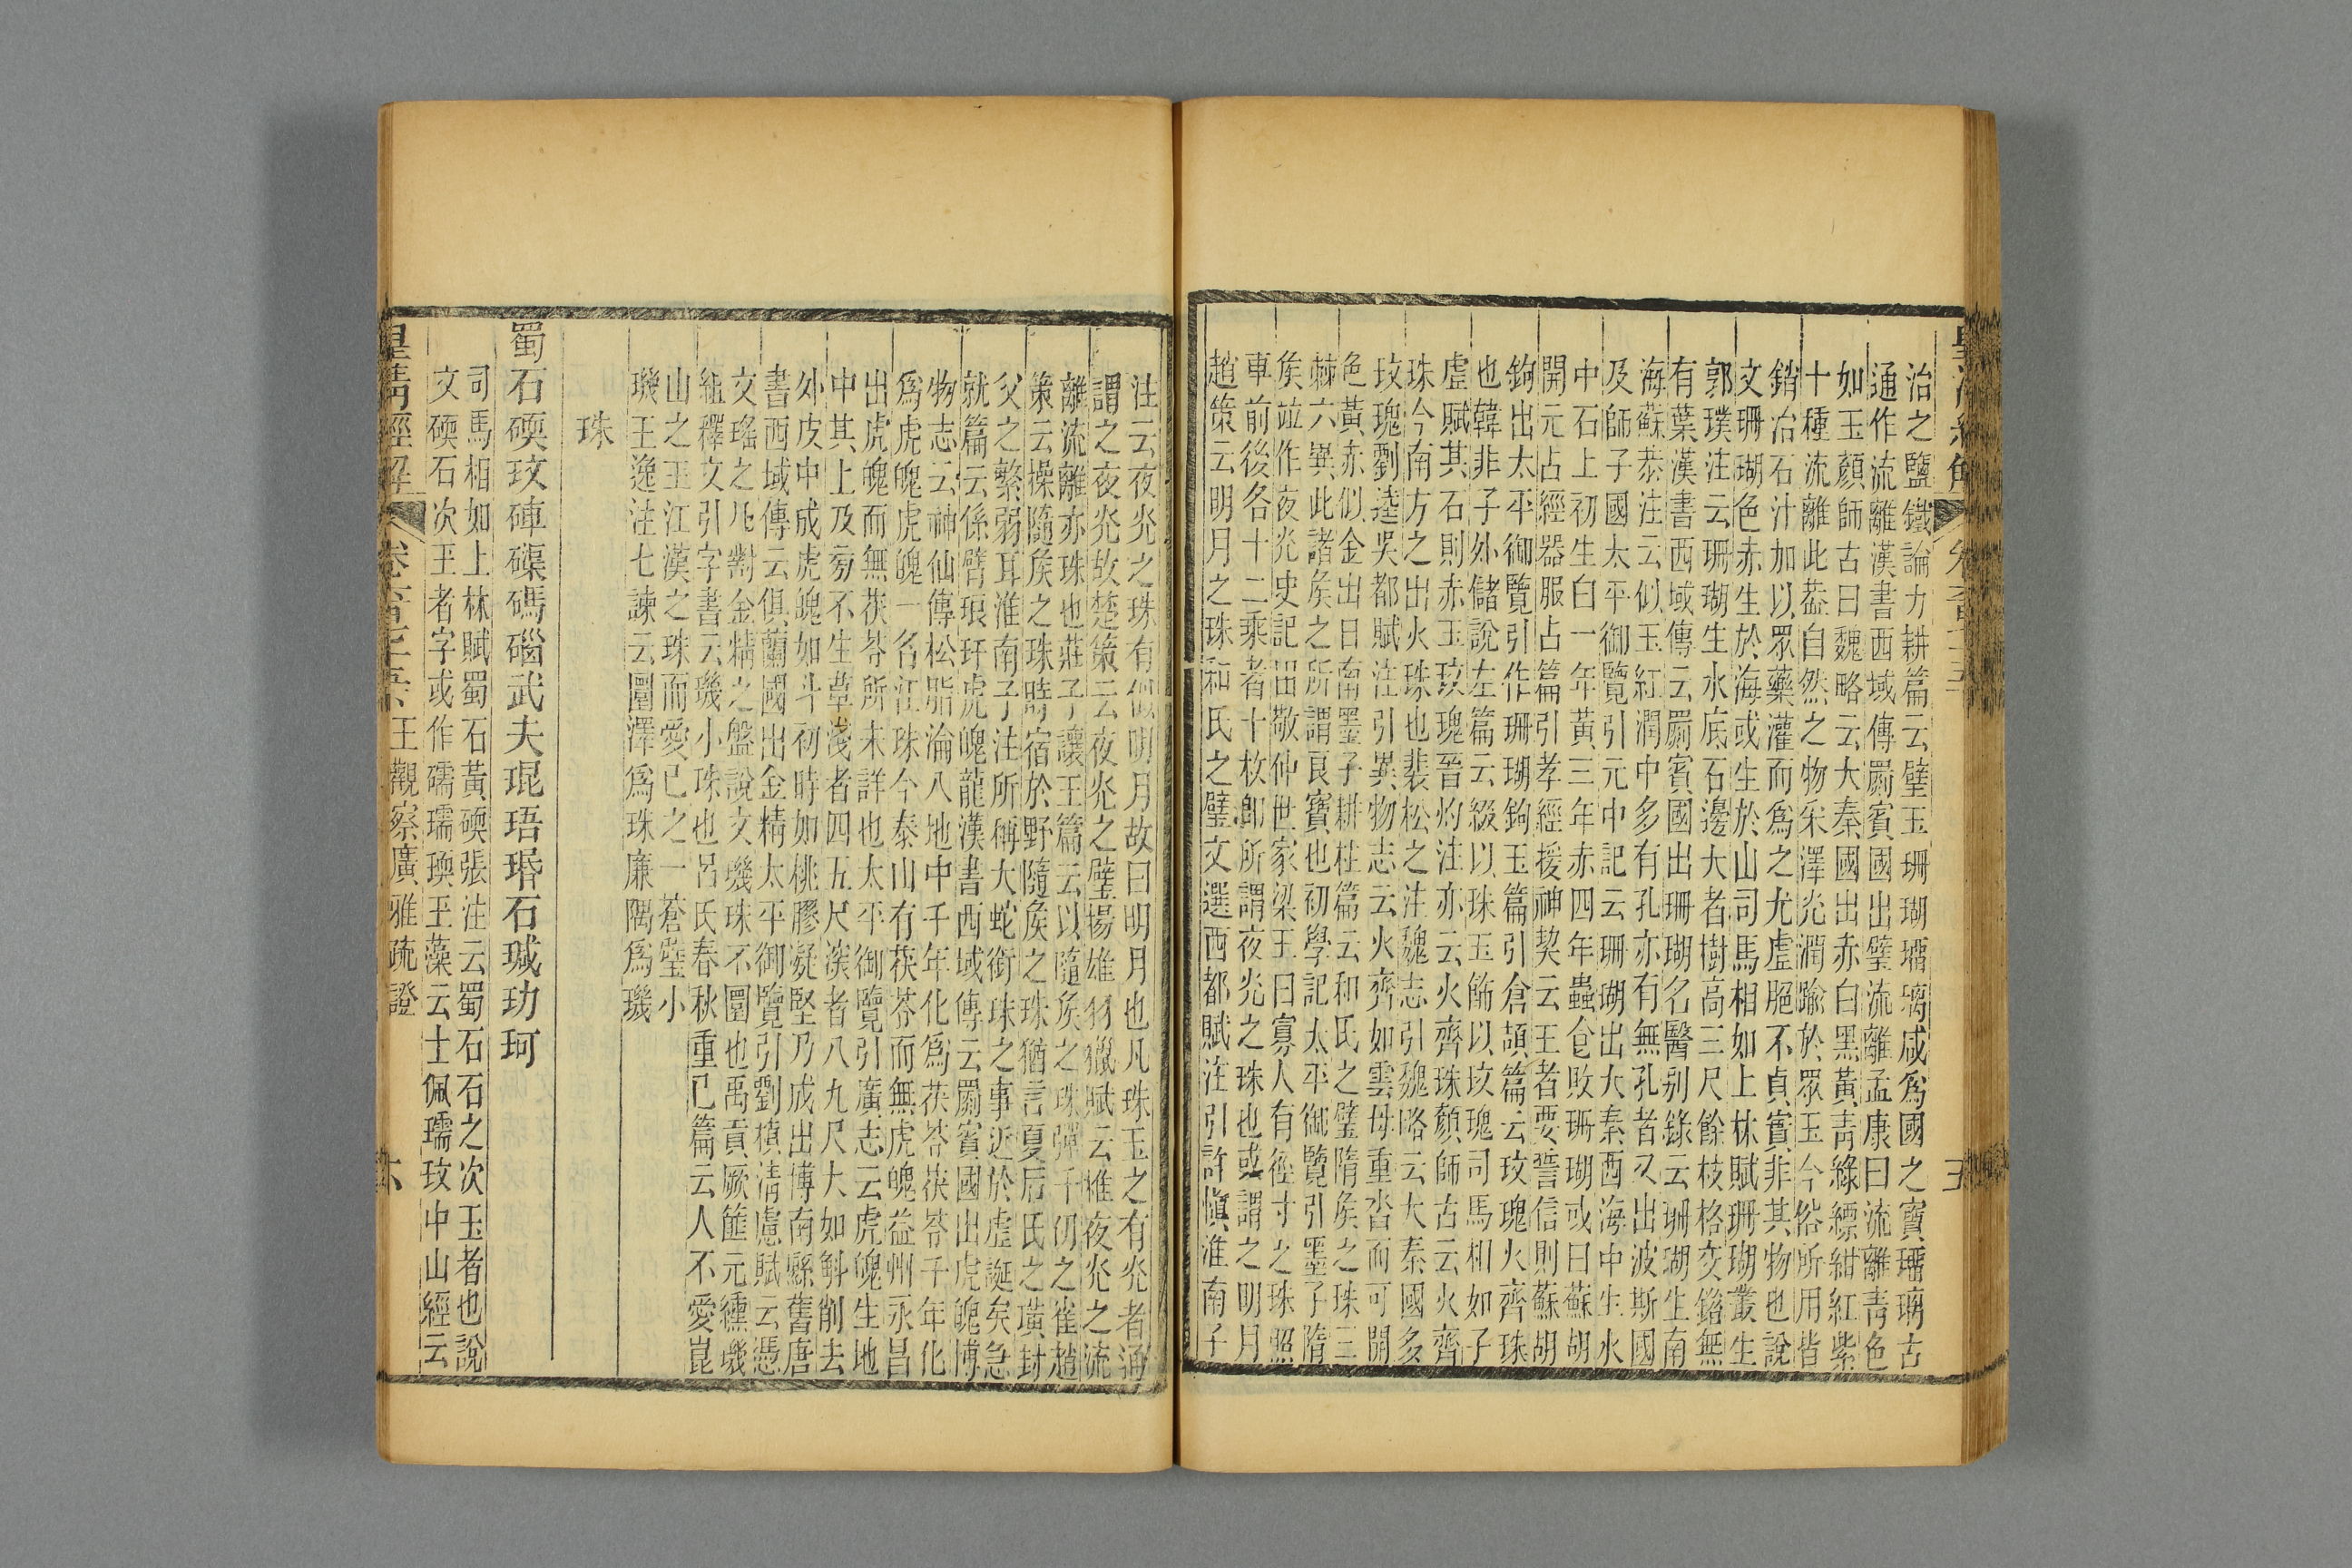 皇清經解
五
治之鹽鐵論力耕篇云璧玉珊瑚璢璃咸爲國之寶璢璃古
通作流離漢書西域傳罽賓國出璧流離孟康曰流離靑色
如玉顏師古曰魏略云大秦國出赤白黑黃靑綠縹紺紅紫
十種流離此葢自然之物采澤光潤踰於眾玉今俗所用皆
銷冶石汁加以眾藥灌而爲之尤虛脆不貞實非其物也說
文珊瑚色赤生於海或生於山司馬相如上林賦珊瑚叢生
郭璞注云珊瑚生水底石邊大者樹高三尺餘枝格交錯無
有葉漢書西域傳云罽賓國出珊瑚名醫別錄云珊瑚生南
海蘇恭注云似玉紅潤中多有孔亦有無孔者又出波斯國
及師子國太平御覽引元中記云珊瑚出大秦西海中生水
中石上初生白一年黃三年赤四年蟲食敗珊瑚或曰蘇胡
開元占經器服占篇引孝經援神契云王者要誓信則蘇胡
鉤出太平御覽引作珊瑚鉤玉篇引倉頡篇云玫瑰火齊珠
也韓非子外儲說左篇云綴以珠玉飾以玫瑰司馬相如子
虛賦其石則赤玉玫瑰晉灼注亦云火齊珠顏師古云火齊
珠今南方之出火珠也裴松之注魏志引魏略云大秦國多
玫瑰劉逵吳都賦注引異物志云火齊如雲母重沓而可開
色黃赤似金出日南墨子耕柱篇云和氏之璧隋矦之珠三
棘六異此諸矦之所謂良寶也初學記太平御覽引墨子隋
矦竝作夜光史記田敬仲世家梁王曰寡人有徑寸之珠照
車前後各十二乘者十枚卽所謂夜光之珠也或謂之明月
趙策云明月之珠和氏之璧文選西都賦注引許愼淮南子
注云夜光之珠有似明月故曰明月也凡珠玉之有光者通
謂之夜光故楚策云夜光之璧揚雄羽獵賦云椎夜光之流
離流離亦珠也莊子讓王篇云以隨矦之珠彈千仞之雀趙
策云操隨矦之珠時宿於野隨矦之珠猶言夏后氏之璜封
父之繁弱耳淮南子注所稱大蛇銜珠之事近於虛誕矣急
就篇云係臂琅玕虎魄龍漢書西域傳云罽賓國出虎魄博
物志云神仙傳松脂淪八地中千年化爲茯苓茯苓千年化
爲虎魄虎魄一名江珠今泰山有茯苓而無虎魄益州永昌
出虎魄而無茯苓所未詳也太平御覽引廣志云虎魄生地
中其上及旁不生草淺者四五尺深者八九尺大如斛削去
外皮中成虎魄如斗初時如桃膠凝堅乃成出博南縣舊唐
書西域傳云俱蘭國出金精太平御覽引劉楨淸慮賦云憑
文瑤之几對金精之盤說文璣珠不圜也禹貢厥篚元纁璣
組釋文引字書云璣小珠也呂氏春秋重已篇云人不愛崑
山之玉江漢之珠而愛已之一蒼璧小
璣王逸注七諫云圜澤爲珠廉隅爲璣
珠
蜀石碝玟硨磲碼碯武夫琨珸瑉石瑊玏珂
司馬相如上林賦蜀石黃碝張注云蜀石石之次玉者也說
文碝石次玉者字或作礝瓀瑌玉藻云士佩瓀玟中山經云
皇清經解
王觀察廣雅疏證
六